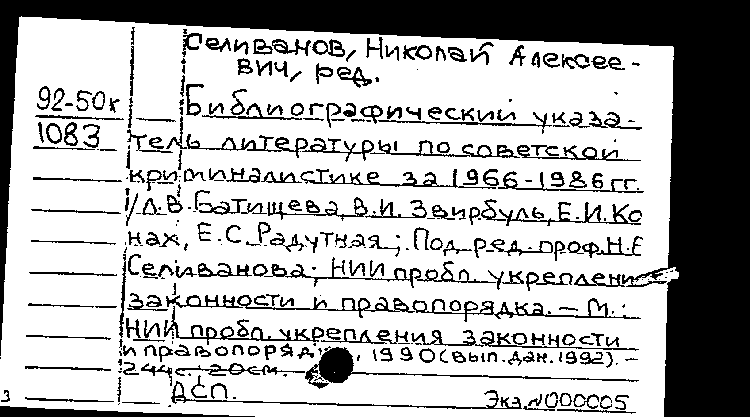 Селиванов, Николай Алексее-
вич, ред.
92-50к
1083
Библиографический указа-
тель литературы по советской
криминалистике за 1966-1986 гг.
/Л.В. Батищева, В.И. Звирбуль, Е.И. Ко
нах, Е.С. Радутная; Под ред. проф. Н.Е
Селиванова; НИИ пробл. укреплени
законности и правопорядка. — М.:
НИИ пробл. укрепления законности
и правопоряд , 1990 (вып. дан. 1992). —
244 с.; 20 см.
ДСП.
Экз. N000005
3